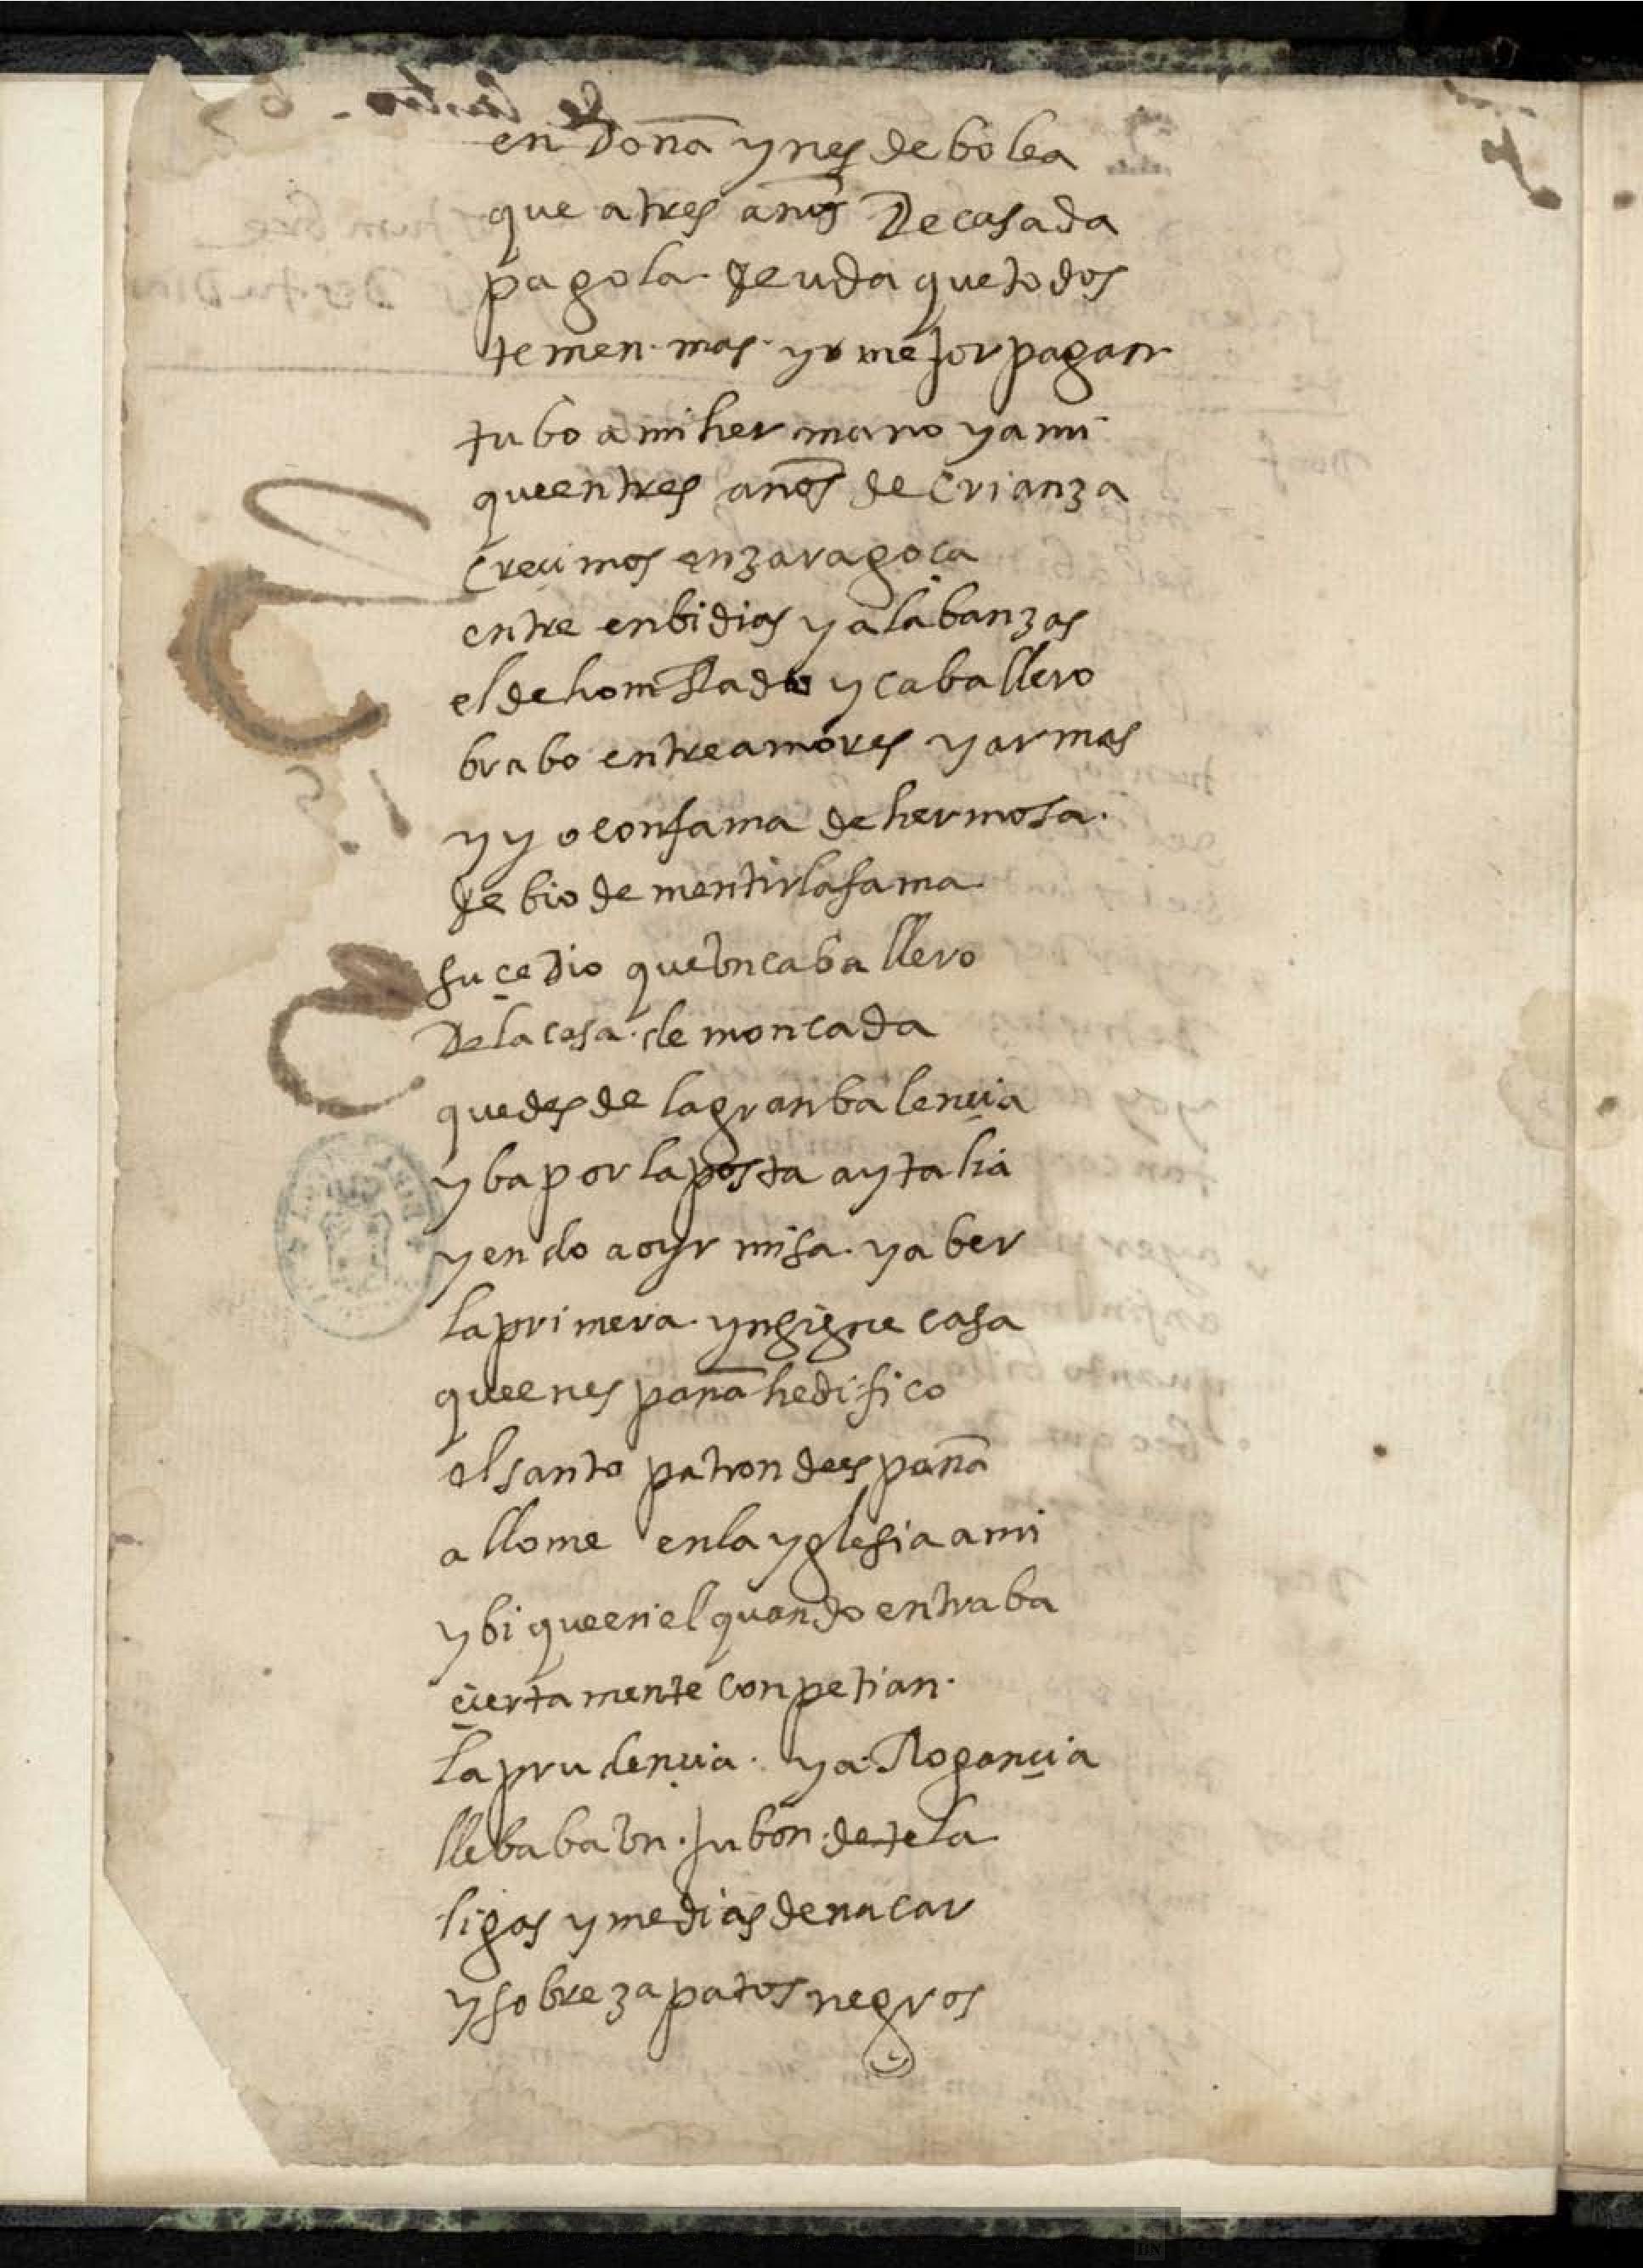 en Doña ynes de bolea
que a tres años De casada
pago la deuda que todos
temen mas y mejor pagan
tubo a mi hermano y a mi
que en tres años de crianza
crecimos en zaragoça
entre enbidias y alabanzas
el de homRado y caballero
brabo entre amores y armas
y yo con fama de hermosa
debio de mentir la fama
sucedio que bn caballero
De la casa de moncada
que desde la gran balencia
yba por la posta a ytalia
yendo a oyr misa y a ber
la primera ynsigne casa
que en españa hedifico
el santo patron de españa
allome en la yglesia a mi
y bi que en el quando entraba
ciertamente conpetian
la prudencia y aRogancia
llebaba bn jubon de tela
ligas y medias de nacar
y sobre zapatos negros